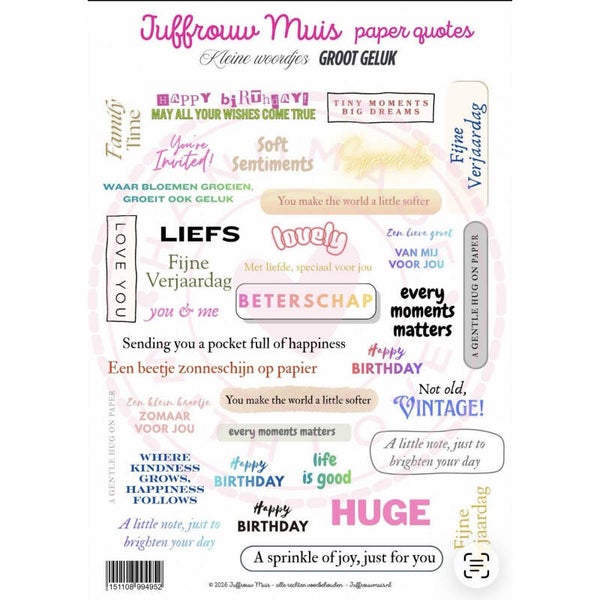 Juffrouw Muis paper quotes
Kleine woordjes GROOT GELUK
Family
Time
HAPPY biRthday!
MAY ALL YOUR WISHES COME TRUE
TINY MOMENTS
BIG DREAMS
Fijne
Verjaardag
You're
Invited!
Soft
Sentiments
Sparkle
WAAR BLOEMEN GROEIEN,
GROEIT OOK GELUK
You make the world a little softer
LOVE YOU
LIEFS
lovely
Een lieve groet
VAN MIJ
VOOR JOU
A GENTLE HUG ON PAPER
Fijne
Verjaardag
Met liefde, speciaal voor jou
you & me
BETERSCHAP
every
moments
matters
Sending you a pocket full of happiness
Happy
BIRTHDAY
Een beetje zonneschijn op papier
A GENTLE HUG ON PAPER
Een klein kaartje
ZOMAAR
VOOR JOU
You make the world a little softer
Not old,
VINTAGE!
every moments matters
A little note, just to
brighten your day
WHERE
KINDNESS
GROWS,
HAPPINESS
FOLLOWS
Happy
BIRTHDAY
life
is good
A little note, just to
brighten your day
Happy
BIRTHDAY
HUGE
Fijne
jaardag
A sprinkle of joy, just for you
151108 994952
© 2026 Juffrouw Muis - alle rechten voorbehouden - Juffrouwmuis.nl